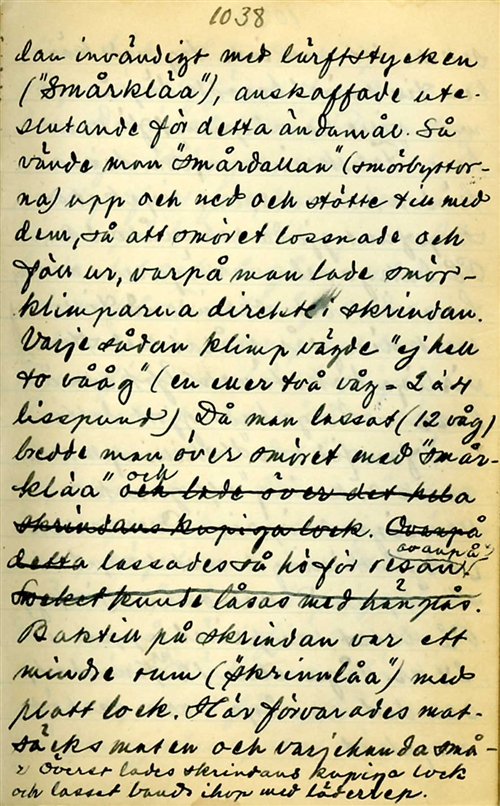 1038
dan invändigt med lärftstycken
("Smårklåa"), anskaffade ute-
slutande för detta ändamål. Så
vände man "smårdallan" (smörbyttor-
na) upp och ned och stötte till med
dem, så att smöret lossnade och
föll ur, varpå man lade smör-
klimparna direkte i skrindan.
Varje sådan klimp vägde "ej hell
to vååg" (en eller två våg = 2 à 4
lisspund) Då man lassat (12 våg)
bredde man över smöret med "smår-
klåa" och lade över det hela
skrindans kupiga lock. Ovanpå
ovanpå 2)
detta lassades så hö för resan.
Locket kunde låsas med hänglås.
Baktill på skrindan var ett
mindre rum ("skrinnlåa") med
platt lock. Här förvarades mat-
säcksmaten och varjehanda små-
2) Överst lades skrindans kupiga lock
och lasset bands ihop med läderrep.